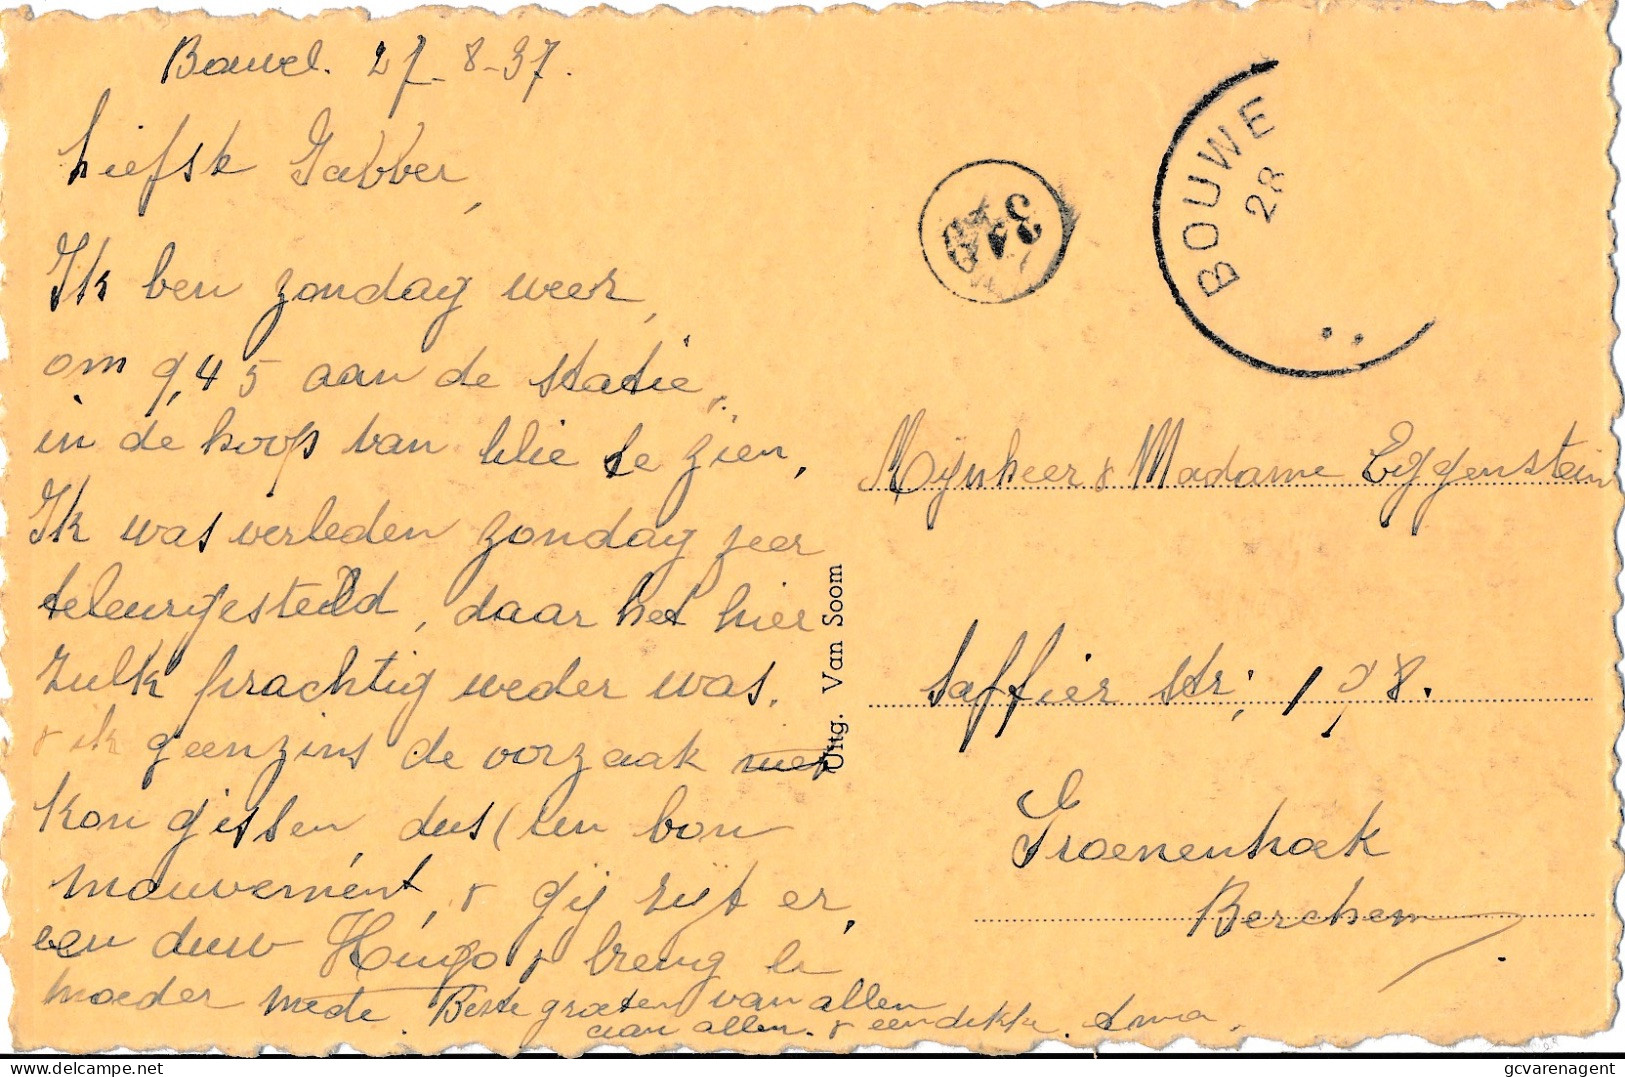 Bouwel. 27-8-37.
Liefste Gabber,
Ik ben zondag weer,
om 9,45 aan de statie,
in de hoop van ulie te zien.
Ik was verleden zondag zeer
teleurgesteld, daar het hier
zulk prachtig weder was.
& ik geenzins de oorzaak niet
kon gissen, dus (un bon
mouvement, & gij zijt er,
een duw Hugo & breng
moeder mede. Beste groeten van allen
aan allen. & een dikke.
BOUWE
28
Uitg. Van Soom
Mijnheer & Madame Eggenstein
Saffier str; 198.
Groenenhoek
Berchem
delcampe.net
gcvarenagent